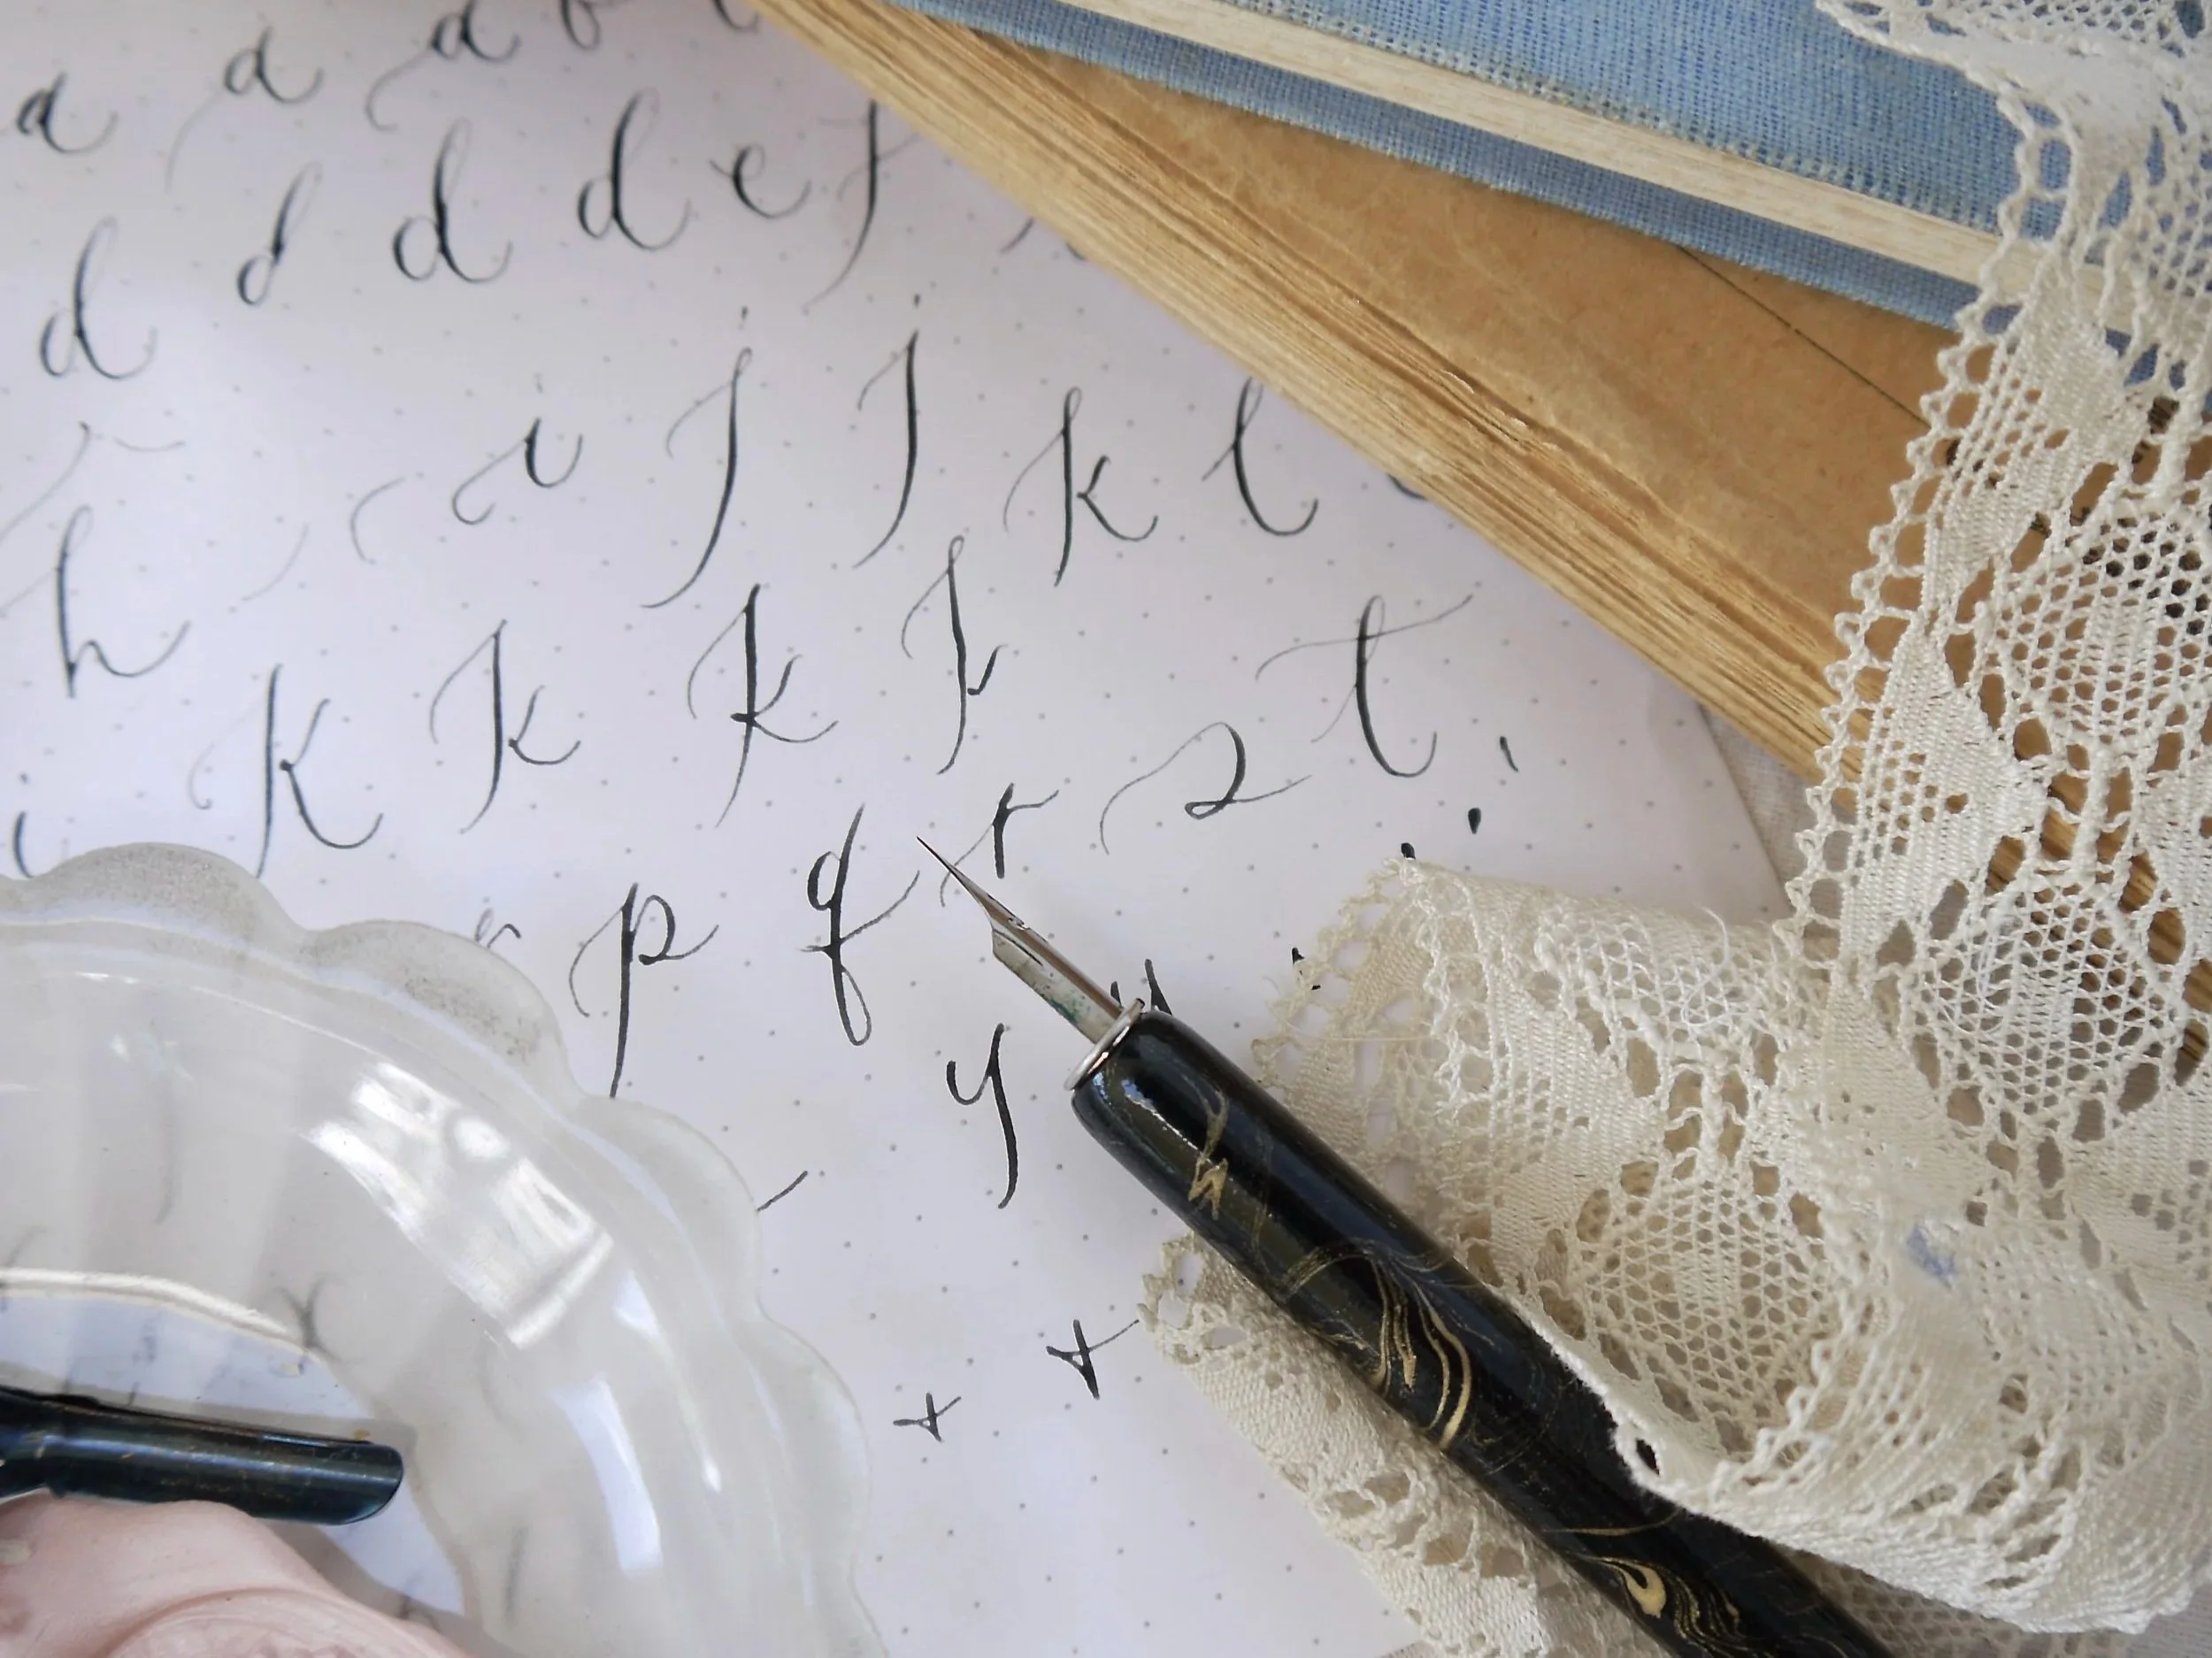 a a a b
d d d d e f
i j j k l
h
k k k k t
i
p q r s t
y